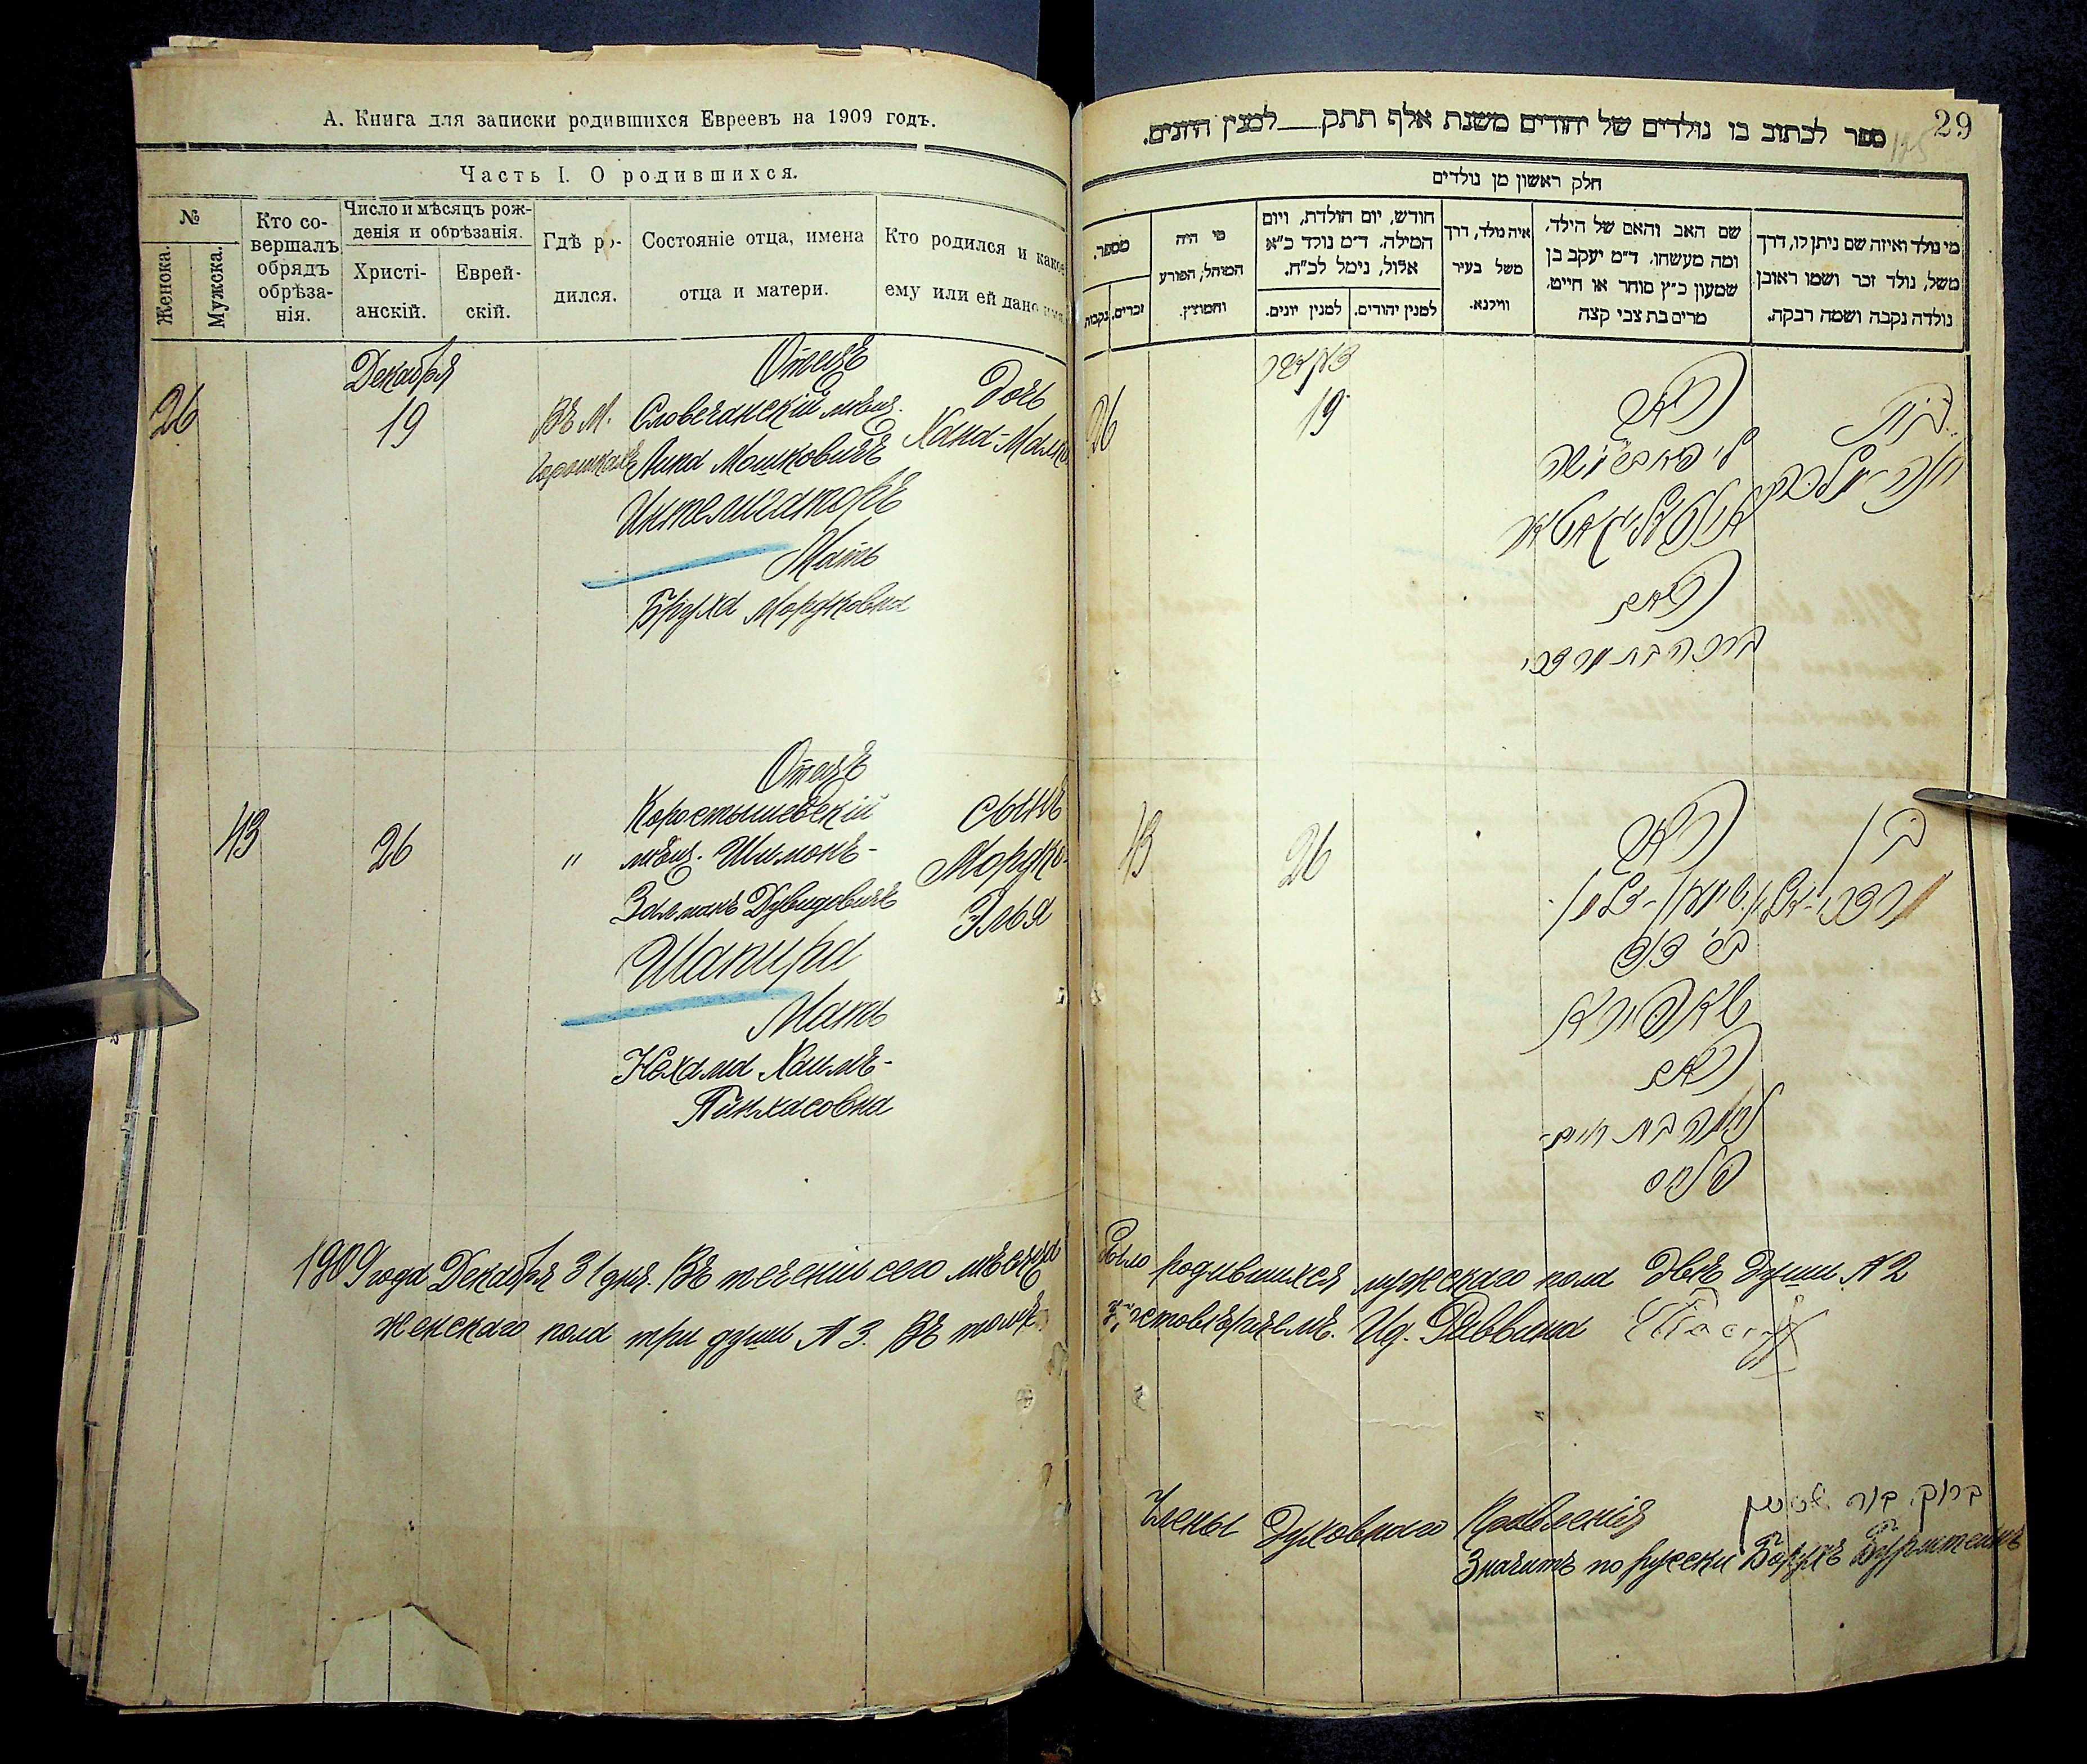 А. Книга для записки родившихся Евреевъ на 1909 годъ.
Часть I. О родившихся.
№
Женска.
Мужска.
Кто со-
вершалъ
обрядъ
обрѣза-
нія.
Число и мѣсяцъ рож-
денія и обрѣзанія.
Христі-
анскій.
Еврей-
скій.
Гдѣ ро-
дился.
Состояніе отца, имена
отца и матери.
Кто родился и какое
ему или ей дано имя
Декабря
26
19
Въ М.
Отецъ
Словечанскій мѣщ.
Липа Мошковичъ
Интелигаторъ
Мать
Бруха Мордковна
Дочь
Хана-Малка
43
26
"
Отецъ
Коростышевскій
мѣщ. Шимонъ-
Залманъ Дувидовичъ
Шапира
Мать
Нехама Хаимъ-
Пинхасовна
сынъ
Мордко-
Элья
1909 года Декабря 31 дня. Въ теченіи сего мѣсяца
женскаго пола три души № 3. Въ томъ
29
ספר לכתוב בו נולדים של יהודים משנת אלף תתק__למנין היונים.
חלק ראשון מן נולדים
מי נולד ואיזה שם ניתן לו, דרך
משל, נולד זכר ושמו ראובן
נולדה נקבה ושמה רבקה.
שם האב והאם של הילד,
ומה מעשהו. ד״מ יעקב בן
שמעון כ״ץ סוחר או חייט,
מרים בת צבי קצה
איה נולד, דרך
משל בעיר
ווילנא.
חודש, יום הולדת, ויום
המילה. ד״מ נולד כ״א
אלול, נימל לכ״ח.
למנין יהודים.
למנין יונים.
מי היה
המוהל, הפורע
והמוצץ.
מספר.
זכרים.
נקבות
דעקאבער
26
19
האב
ליפא ב׳ משה
אינטעליגאטאר
האם
ברכה בת מרדכי
בת
חנה-מלכה
43
26
האב
שימון-זלמן
ב׳ דוד
שאפירא
האם
נחמה בת חיים-
פנחס
בן
מרדכי-אליי׳
было родившихся мужскаго пола двѣ души № 2
Ид. Раввина
Члены Духовнаго Правленія
ברוך בורשטיין
Значитъ по русски Борухъ Бурштейнъ